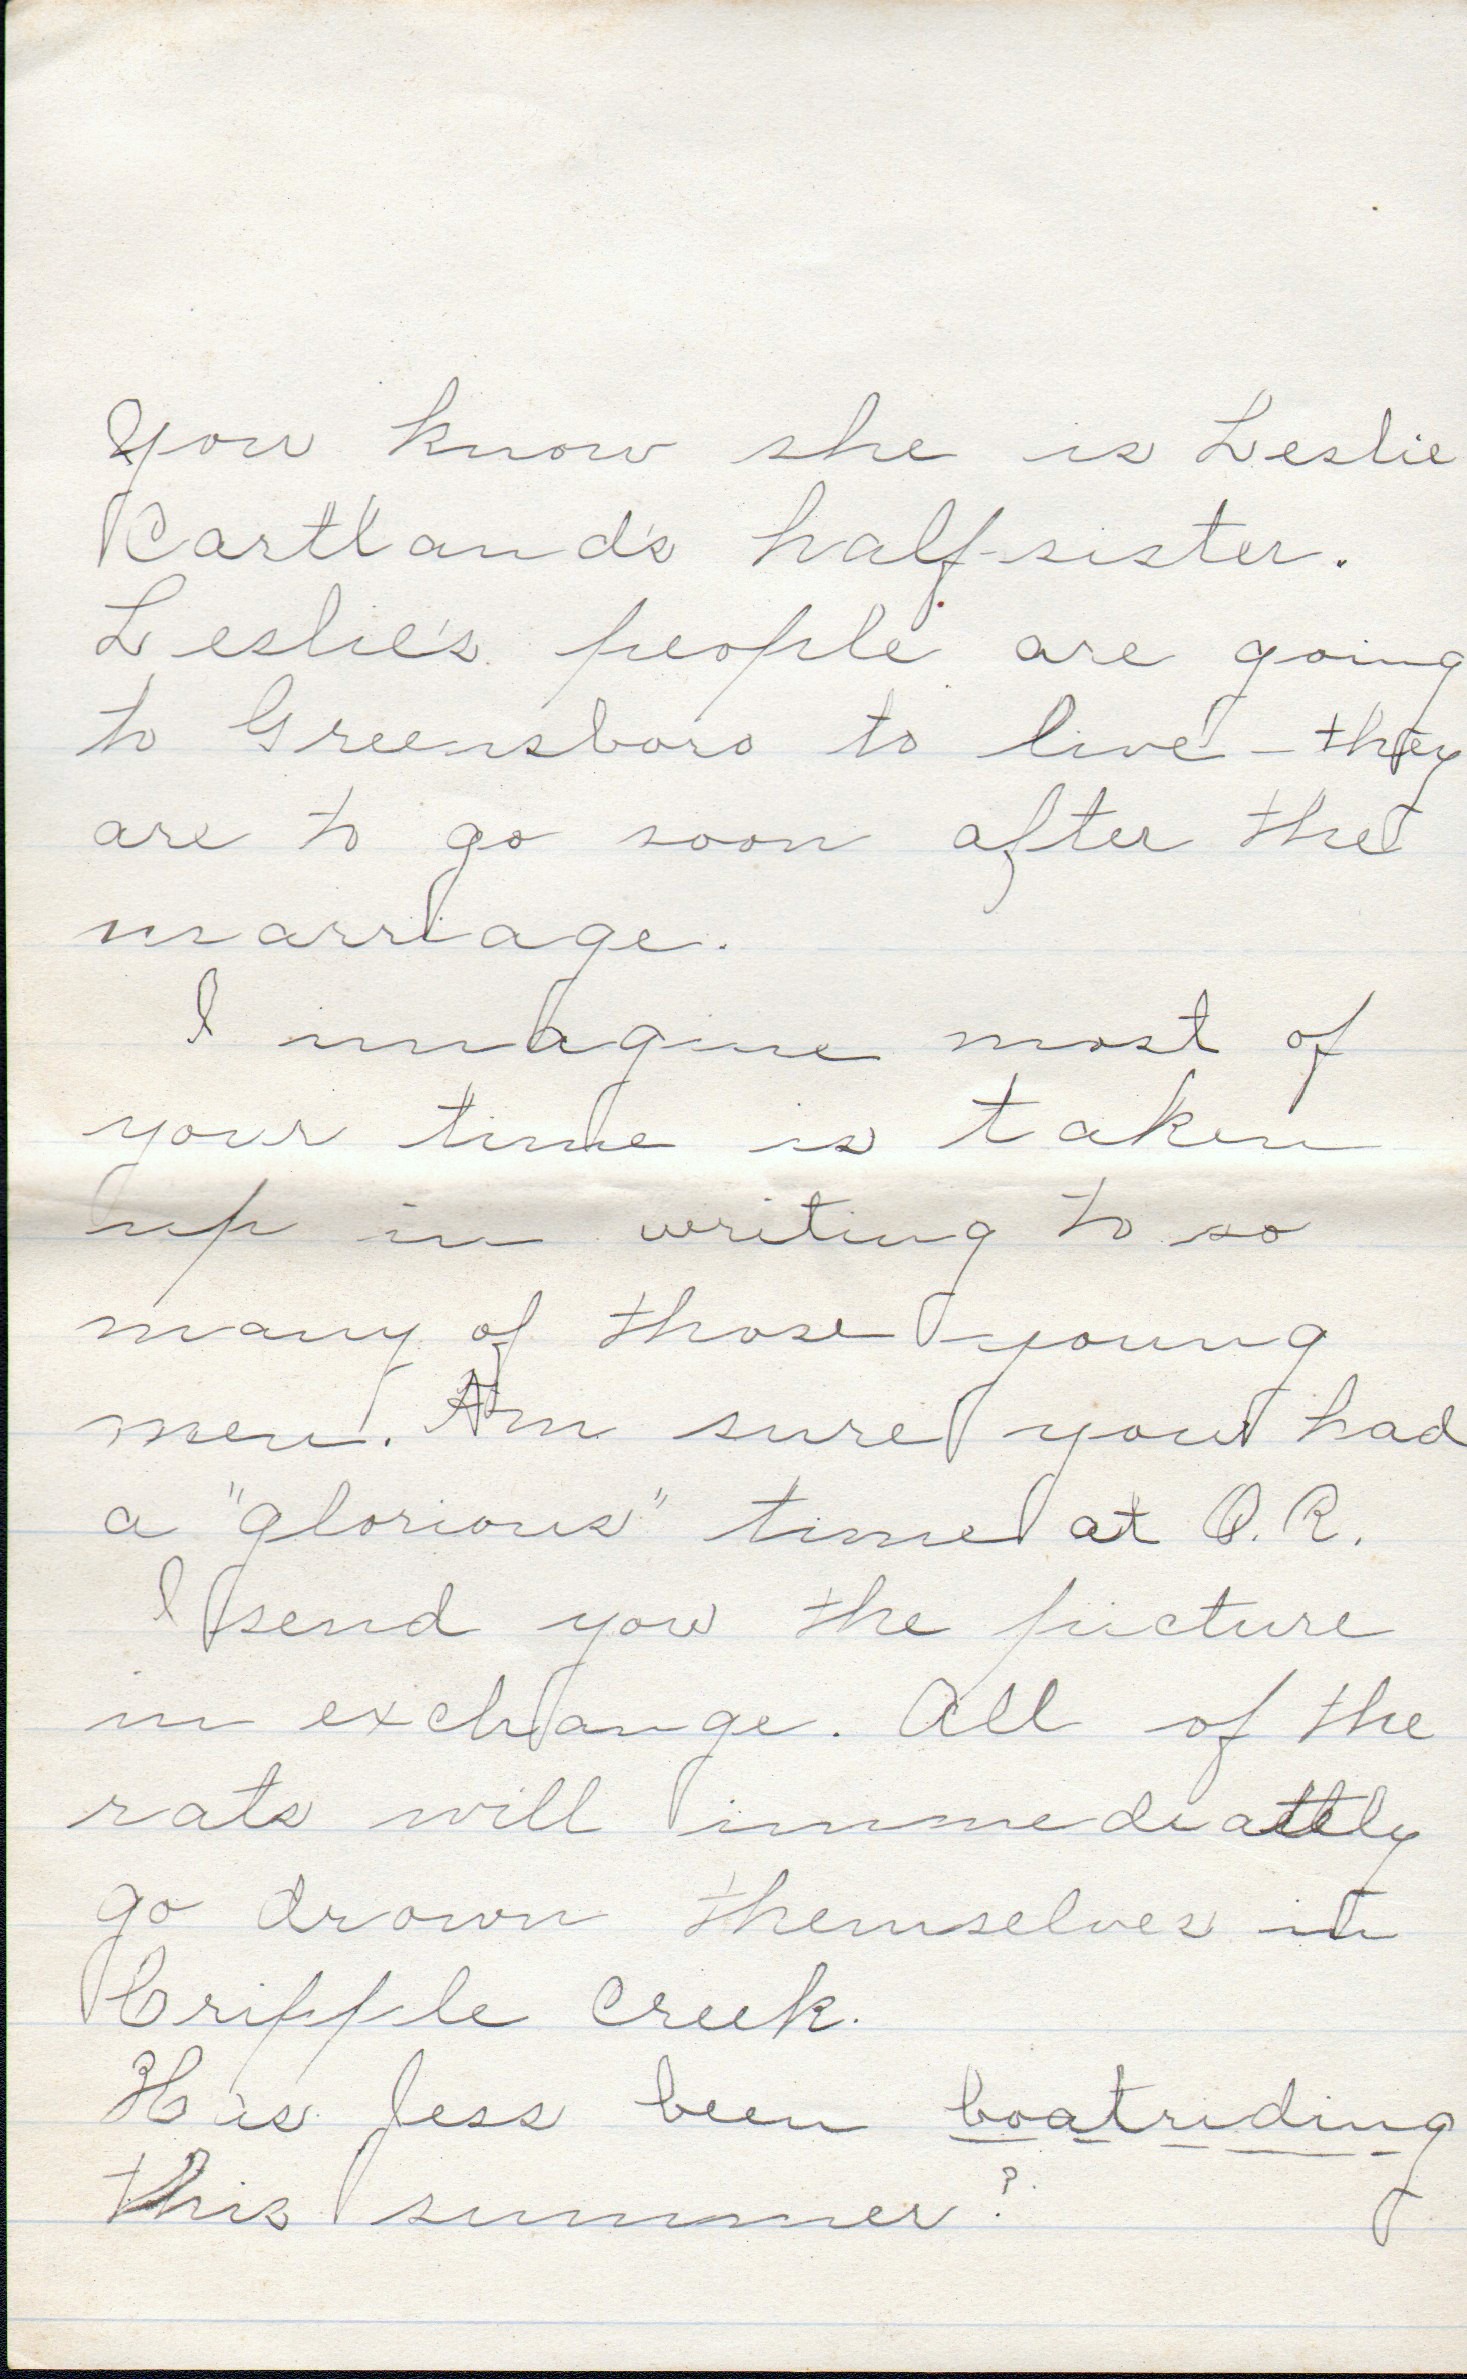 You know she is Leslie
Cartland's half-sister.
Leslie's people are going
to Greensboro to live - they
are to go soon after the
marriage.
I imagine most of
your time is taken
up in writing to so
many of those young
men. Am sure you had
a "glorious" time at O.R.
I send you the picture
in exchange. All of the
rats will immediattly
go drown themselves in
Cripple Creek.
Has Jess been boatriding
this summer?